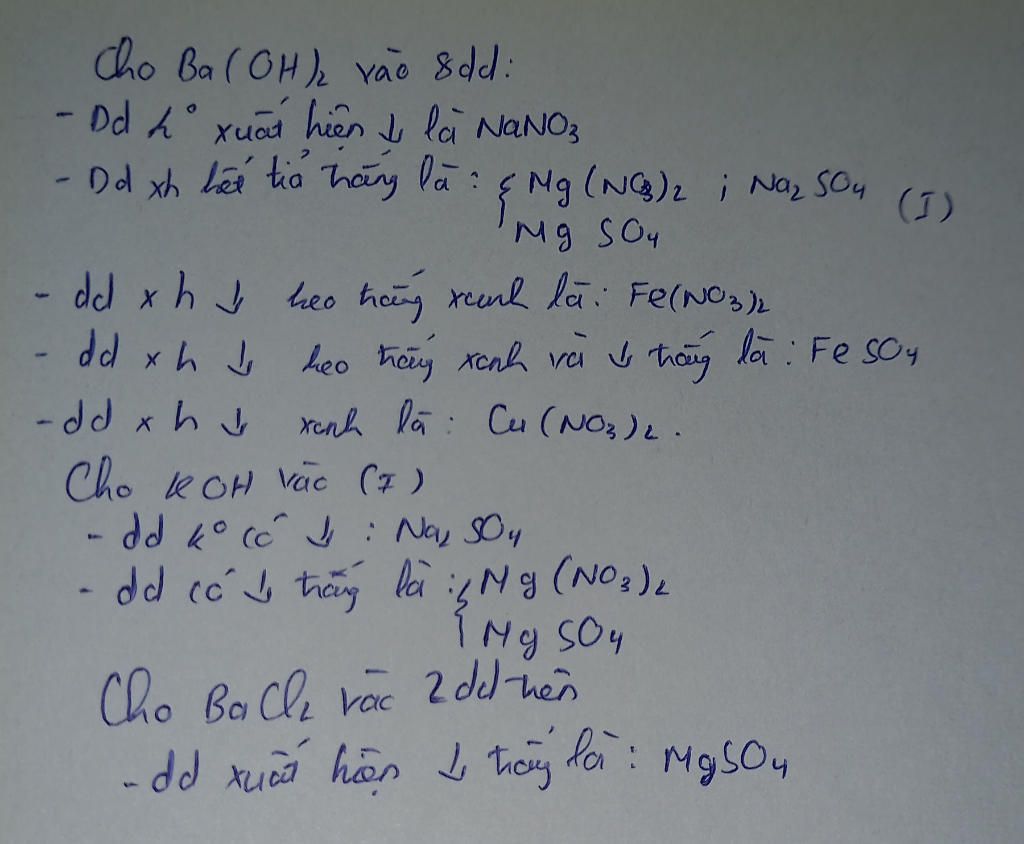 Cho Ba(OH)₂ vào 8dd:
- Dd k° xuất hiện ↓ là NaNO₃
- Dd xh kết tủa trắng là: { Mg(NO₃)₂ ; Na₂SO₄ (I)
MgSO₄
- dd xh ↓ keo trắng xanh là: Fe(NO₃)₂
- dd xh ↓ keo trắng xanh và ↓ trắng là: FeSO₄
- dd xh ↓ xanh là: Cu(NO₃)₂.
Cho KOH vào (I)
- dd k° có ↓ : Na₂SO₄
- dd có ↓ trắng là: { Mg(NO₃)₂
MgSO₄
Cho BaCl₂ vào 2dd trên
- dd xuất hiện ↓ trắng là: MgSO₄